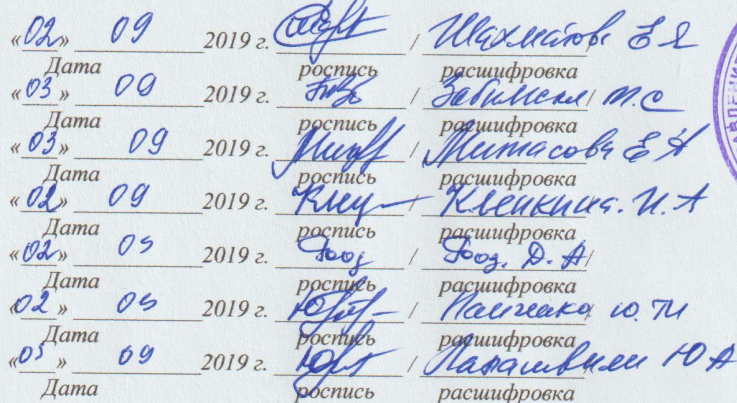 «02» 09 2019 г. / Шахматова Е Я
Дата роспись расшифровка
«03» 09 2019 г. / Забилская / Т. С
Дата роспись расшифровка
«03» 09 2019 г. / Митасова Е А
Дата роспись расшифровка
«02» 09 2019 г. / Клепкина. И. А
Дата роспись расшифровка
«02» 09 2019 г. Гооз / Гооз. Д. А/
Дата роспись расшифровка
«02» 09 2019 г. / Ю. Ти
Дата роспись расшифровка
«03» 09 2019 г. / Ю А
Дата роспись расшифровка